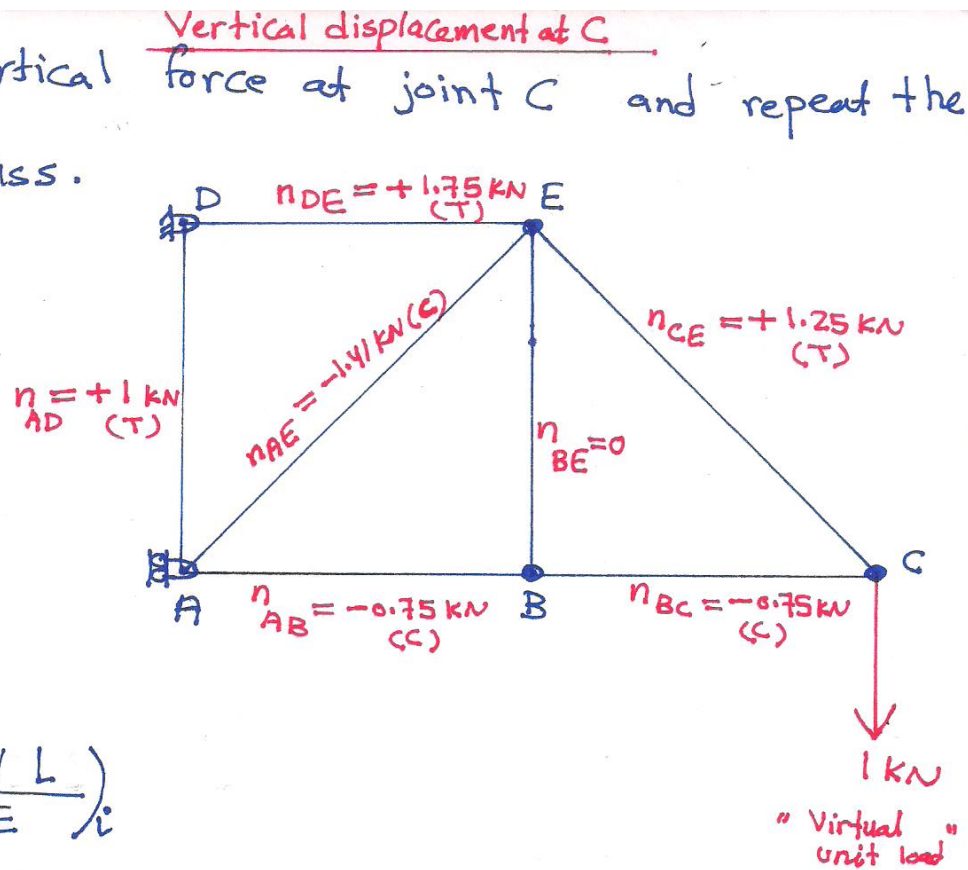 Vertical displacement at C
rtical force at joint C and repeat the
uss.
D
nDE = +1.75 KN (T)
E
nAE = -1.41 KN (C)
nCE = +1.25 KN (T)
nAD = +1 KN (T)
nBE = 0
A
nAB = -0.75 KN (C)
B
nBC = -0.75 KN (C)
C
L
E )i
1 KN
" Virtual unit load "